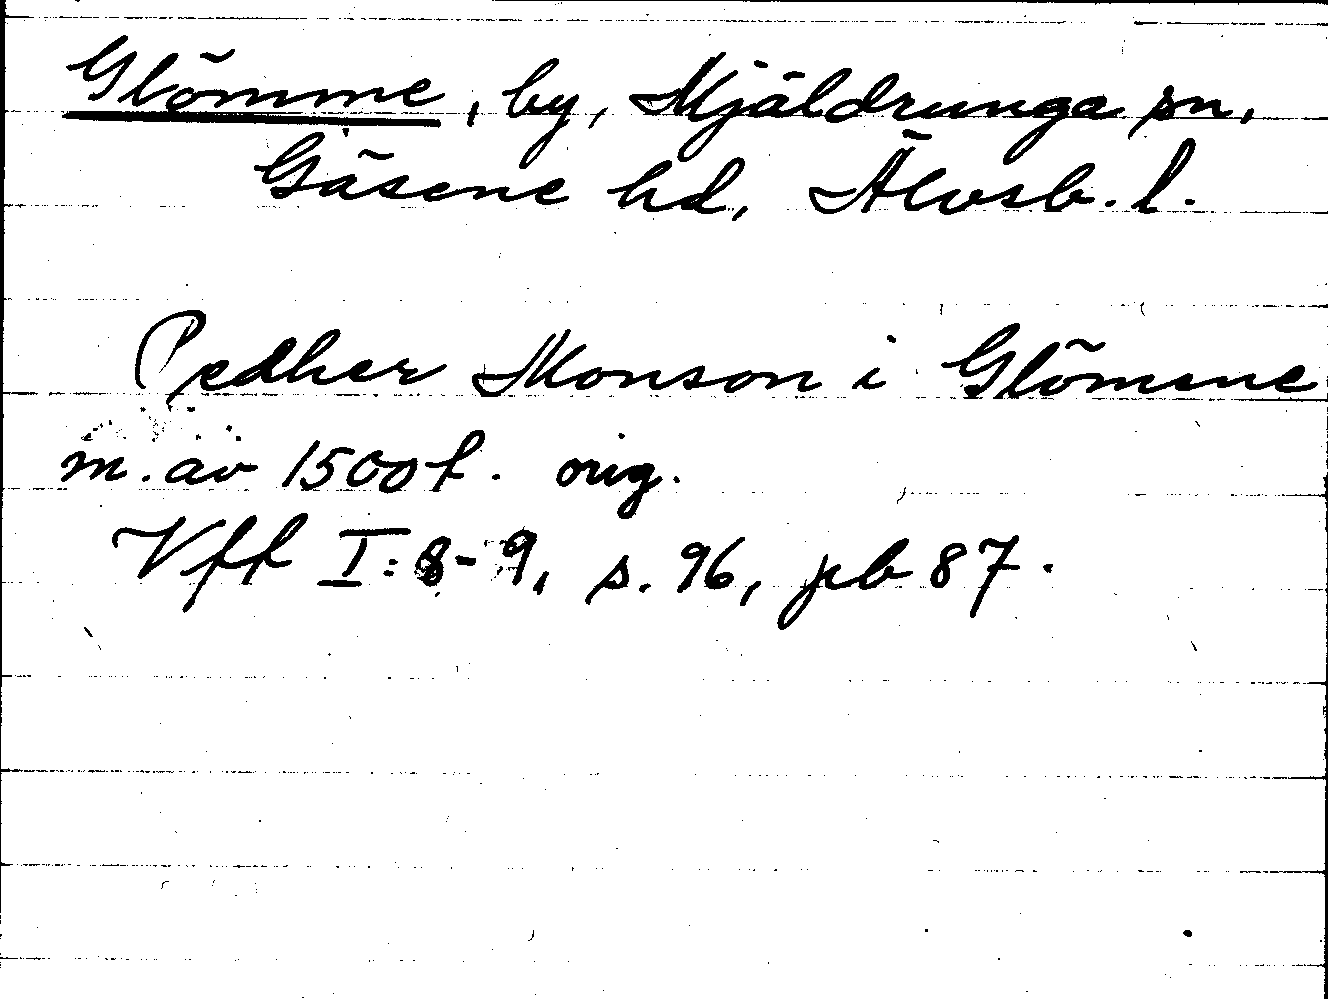 Glömme, by, Mjäldrunga sn,
Gäsene hd, Älvsb. l.
Pedher Monson i Glömme
m. av 1500t. orig.
Vff I: 8-9, s. 96, pb 87.